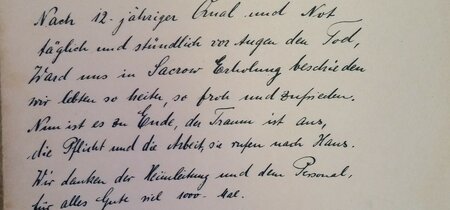 Nach 12. jähriger Qual und Not
täglich und stündlich vor Augen den Tod,
Ward uns in Sacrow Erholung beschieden
wir lebten so heiter, so froh und zufrieden.
Nun ist es zu Ende, der Traum ist aus,
die Pflicht und die Arbeit, sie rufen nach Haus.
Wir danken der Heimleitung und dem Personal,
für alles Gute viel 1000. Mal.